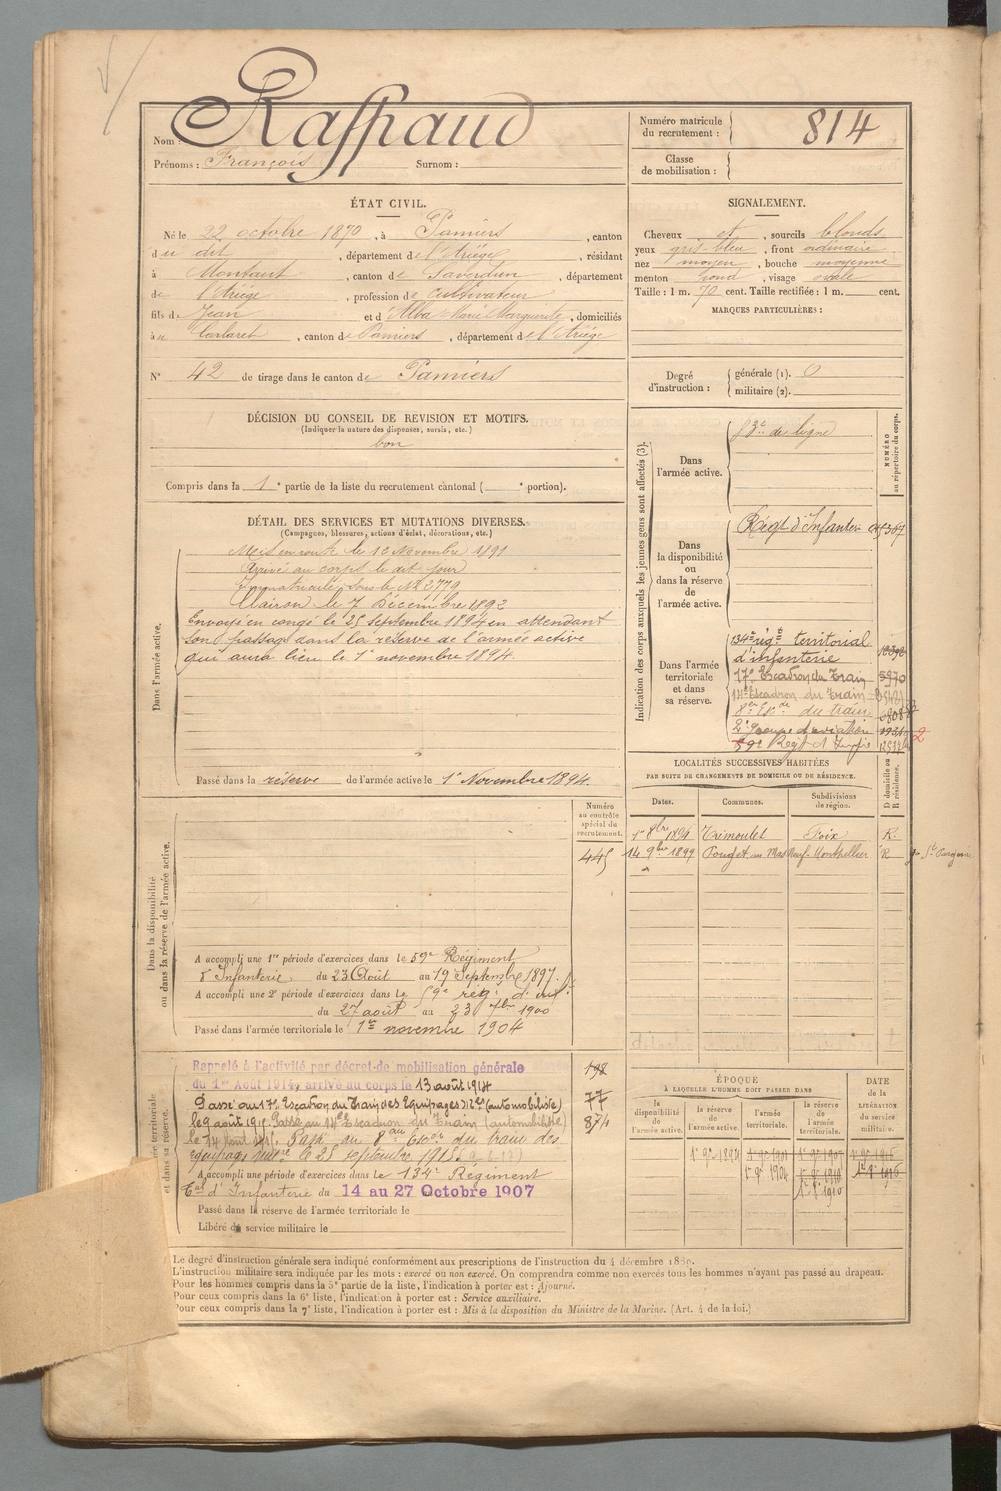 Nom : Raffraud
Prénoms : François Surnom :
Numéro matricule du recrutement : 814
Classe de mobilisation :
ÉTAT CIVIL.
Né le 22 octobre 1870, à Pamiers, canton
du dit, département de l'Ariège, résidant
à Montaut, canton de Saverdun, département
de l'Ariège, profession de cultivateur
fils de Jean et d'Alba Marie Marguerite, domiciliés
à, canton de Pamiers, département de l'Ariège
N° 42 de tirage dans le canton de Pamiers
SIGNALEMENT.
Cheveux et, sourcils blonds
yeux gris-bleu, front ordinaire
nez moyen, bouche moyenne
menton rond, visage ovale
Taille : 1 m. 70 cent. Taille rectifiée : 1 m. cent.
MARQUES PARTICULIÈRES :
Degré d'instruction : générale (1). 0
militaire (2).
DÉCISION DU CONSEIL DE REVISION ET MOTIFS.
(Indiquer la nature des dispenses, sursis, etc.)
bon
Compris dans la 1e partie de la liste du recrutement cantonal ( e portion).
DÉTAIL DES SERVICES ET MUTATIONS DIVERSES.
(Campagnes, blessures, actions d'éclat, décorations, etc.)
Dans l'armée active.
Mis en route le 12 Novembre 1891
Arrivé au corps le dit jour
Immatriculé sous le N° 2779
Clairon le 7 Décembre 1892
Envoyé en congé le 25 septembre 1894 en attendant
son passage dans la réserve de l'armée active
qui aura lieu le 1er novembre 1894.
Passé dans la réserve de l'armée active le 1er Novembre 1894.
Indication des corps auxquels les jeunes gens sont affectés (3).
NUMÉRO au répertoire du corps.
Dans l'armée active.
de ligne
Dans la disponibilité ou dans la réserve de l'armée active.
Régt d'Infanterie
Dans l'armée territoriale et dans sa réserve.
134e régt territorial
d'infanterie
17e Escadron du Train
14e Escadron du Train
8e Esc. du train
2e groupe d'aviation
Régt d'Infie
LOCALITÉS SUCCESSIVES HABITÉES
PAR SUITE DE CHANGEMENTS DE DOMICILE OU DE RÉSIDENCE.
Dates. Communes. Subdivisions de région. D domicile ou R résidence.
1er 8bre 1894 Trémoulet Foix R.
14 9bre 1899 Pouget au Mas Neuf Montpellier R
Numéro au contrôle spécial du recrutement.
445
Dans la disponibilité ou dans la réserve de l'armée active.
A accompli une 1re période d'exercices dans le 59e Régiment
d'Infanterie du 23 Août au 19 Septembre 1897.
A accompli une 2e période d'exercices dans le 59e rég. d'inf.
du 27 août au 23 7bre 1900
Passé dans l'armée territoriale le 1er novembre 1904
Rappelé à l'activité par décret de mobilisation générale
du 1er Août 1914, arrivé au corps le 13 août 1914
Passé au 17e Escadron du Train des Equipages Mres (automobiliste)
le 9 août 1915. Passé au 14e Escadron du Train (automobiliste)
le 14 Août 1915. Passé au 8eme Escon du train des
équipages mre le 25 septembre 1915
A accompli une période d'exercices dans le 134e Régiment
Tal d'Infanterie du 14 au 27 Octobre 1907
Passé dans la réserve de l'armée territoriale le
Libéré du service militaire le
198
77
874
ÉPOQUE
À LAQUELLE L'HOMME DOIT PASSER DANS
la disponibilité de l'armée active. la réserve de l'armée active. l'armée territoriale. la réserve de l'armée territoriale.
DATE de la LIBÉRATION du service militaire.
Le degré d'instruction générale sera indiqué conformément aux prescriptions de l'instruction du 4 décembre 1889.
L'instruction militaire sera indiquée par les mots : exercé ou non exercé. On comprendra comme non exercés tous les hommes n'ayant pas passé au drapeau.
Pour les hommes compris dans la 5e partie de la liste, l'indication à porter est : Ajourné.
Pour ceux compris dans la 6e liste, l'indication à porter est : Service auxiliaire.
Pour ceux compris dans la 7e liste, l'indication à porter est : Mis à la disposition du Ministre de la Marine. (Art. 4 de la loi.)